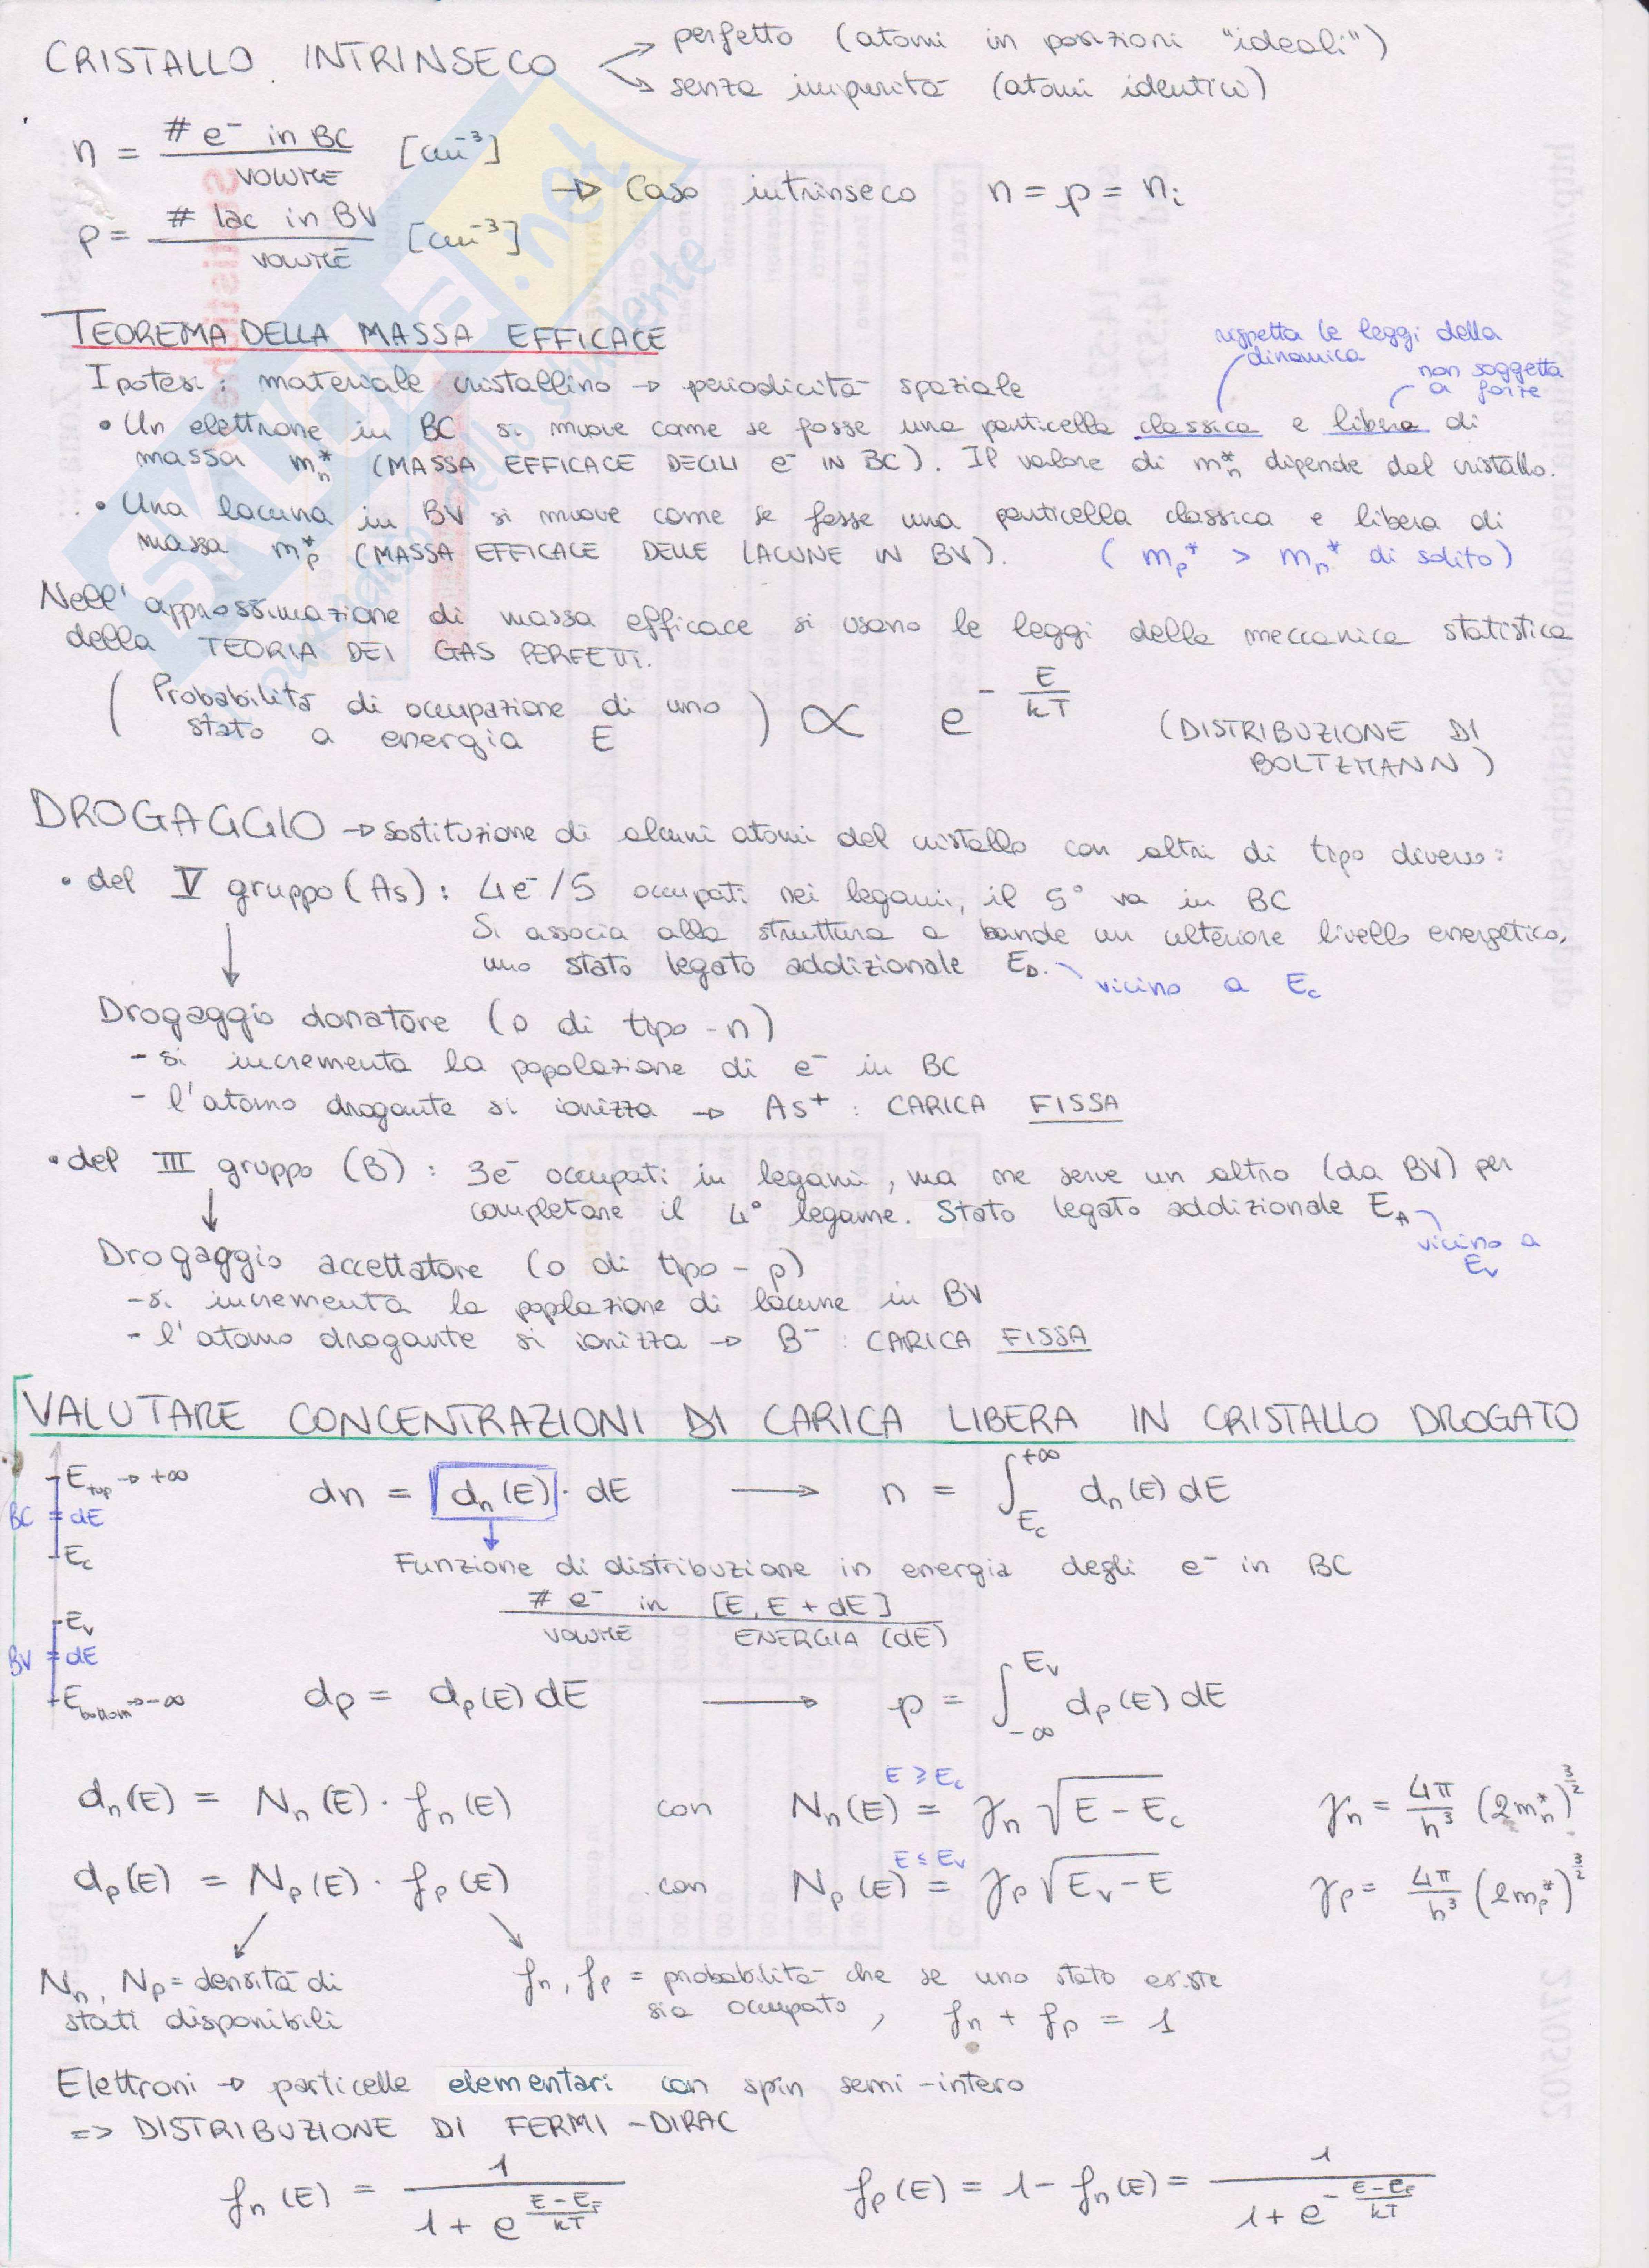 CRISTALLO INTRINSECO
perfetto (atomi in posizioni "ideali")
senza impurità (atomi identici)
n = # e⁻ in BC / VOLUME [cm⁻³]
p = # lac in BV / VOLUME [cm⁻³]
→ Caso intrinseco n = p = nᵢ
TEOREMA DELLA MASSA EFFICACE
rispetta le leggi della
dinamica
non soggetta
a forze
Ipotesi: materiale cristallino → periodicità spaziale
• Un elettrone in BC si muove come se fosse una particella classica e libera di
massa mₙ* (MASSA EFFICACE DEGLI e⁻ IN BC). Il valore di mₙ* dipende dal cristallo.
• Una lacuna in BV si muove come se fosse una particella classica e libera di
massa mₚ* (MASSA EFFICACE DELLE LACUNE IN BV). (mₚ* > mₙ* di solito)
Nell'approssimazione di massa efficace si usano le leggi della meccanica statistica
della TEORIA DEI GAS PERFETTI.
(Probabilità di occupazione di uno
stato a energia E) ∝ e^(-E/kT)
(DISTRIBUZIONE DI
BOLTZMANN)
DROGAGGIO → sostituzione di alcuni atomi del cristallo con altri di tipo diverso:
• del V gruppo (As): 4e⁻/5 occupati nei legami, il 5° va in BC
Si associa alla struttura a bande un ulteriore livello energetico,
uno stato legato addizionale E_D. vicino a E_c
Drogaggio donatore (o di tipo-n)
- si incrementa la popolazione di e⁻ in BC
- l'atomo drogante si ionizza → As⁺ : CARICA FISSA
• del III gruppo (B): 3e⁻ occupati in legami, ma ne serve un altro (da BV) per
completare il 4° legame. Stato legato addizionale E_A
vicino a
E_v
Drogaggio accettatore (o di tipo-p)
- si incrementa la popolazione di lacune in BV
- l'atomo drogante si ionizza → B⁻ : CARICA FISSA
VALUTARE CONCENTRAZIONI DI CARICA LIBERA IN CRISTALLO DROGATO
E_top → +∞
BC dE
E_c
dn = dₙ(E) · dE → n = ∫_{E_c}^{+∞} dₙ(E) dE
Funzione di distribuzione in energia degli e⁻ in BC
# e⁻ in [E, E + dE]
VOLUME ENERGIA (dE)
E_v
BV dE
E_bottom → -∞
dp = dₚ(E) dE → p = ∫_{-∞}^{E_v} dₚ(E) dE
dₙ(E) = Nₙ(E) · fₙ(E) con Nₙ(E) = γₙ √(E - E_c) E ≥ E_c γₙ = 4π/h³ (2mₙ*)^(3/2)
dₚ(E) = Nₚ(E) · fₚ(E) con Nₚ(E) = γₚ √(E_v - E) E ≤ E_v γₚ = 4π/h³ (2mₚ*)^(3/2)
Nₙ, Nₚ = densità di
stati disponibili
fₙ, fₚ = probabilità che se uno stato esiste
sia occupato, fₙ + fₚ = 1
Elettroni → particelle elementari con spin semi-intero
=> DISTRIBUZIONE DI FERMI-DIRAC
fₙ(E) = 1 / (1 + e^((E-E_F)/kT)) fₚ(E) = 1 - fₙ(E) = 1 / (1 + e^(-(E-E_F)/kT))